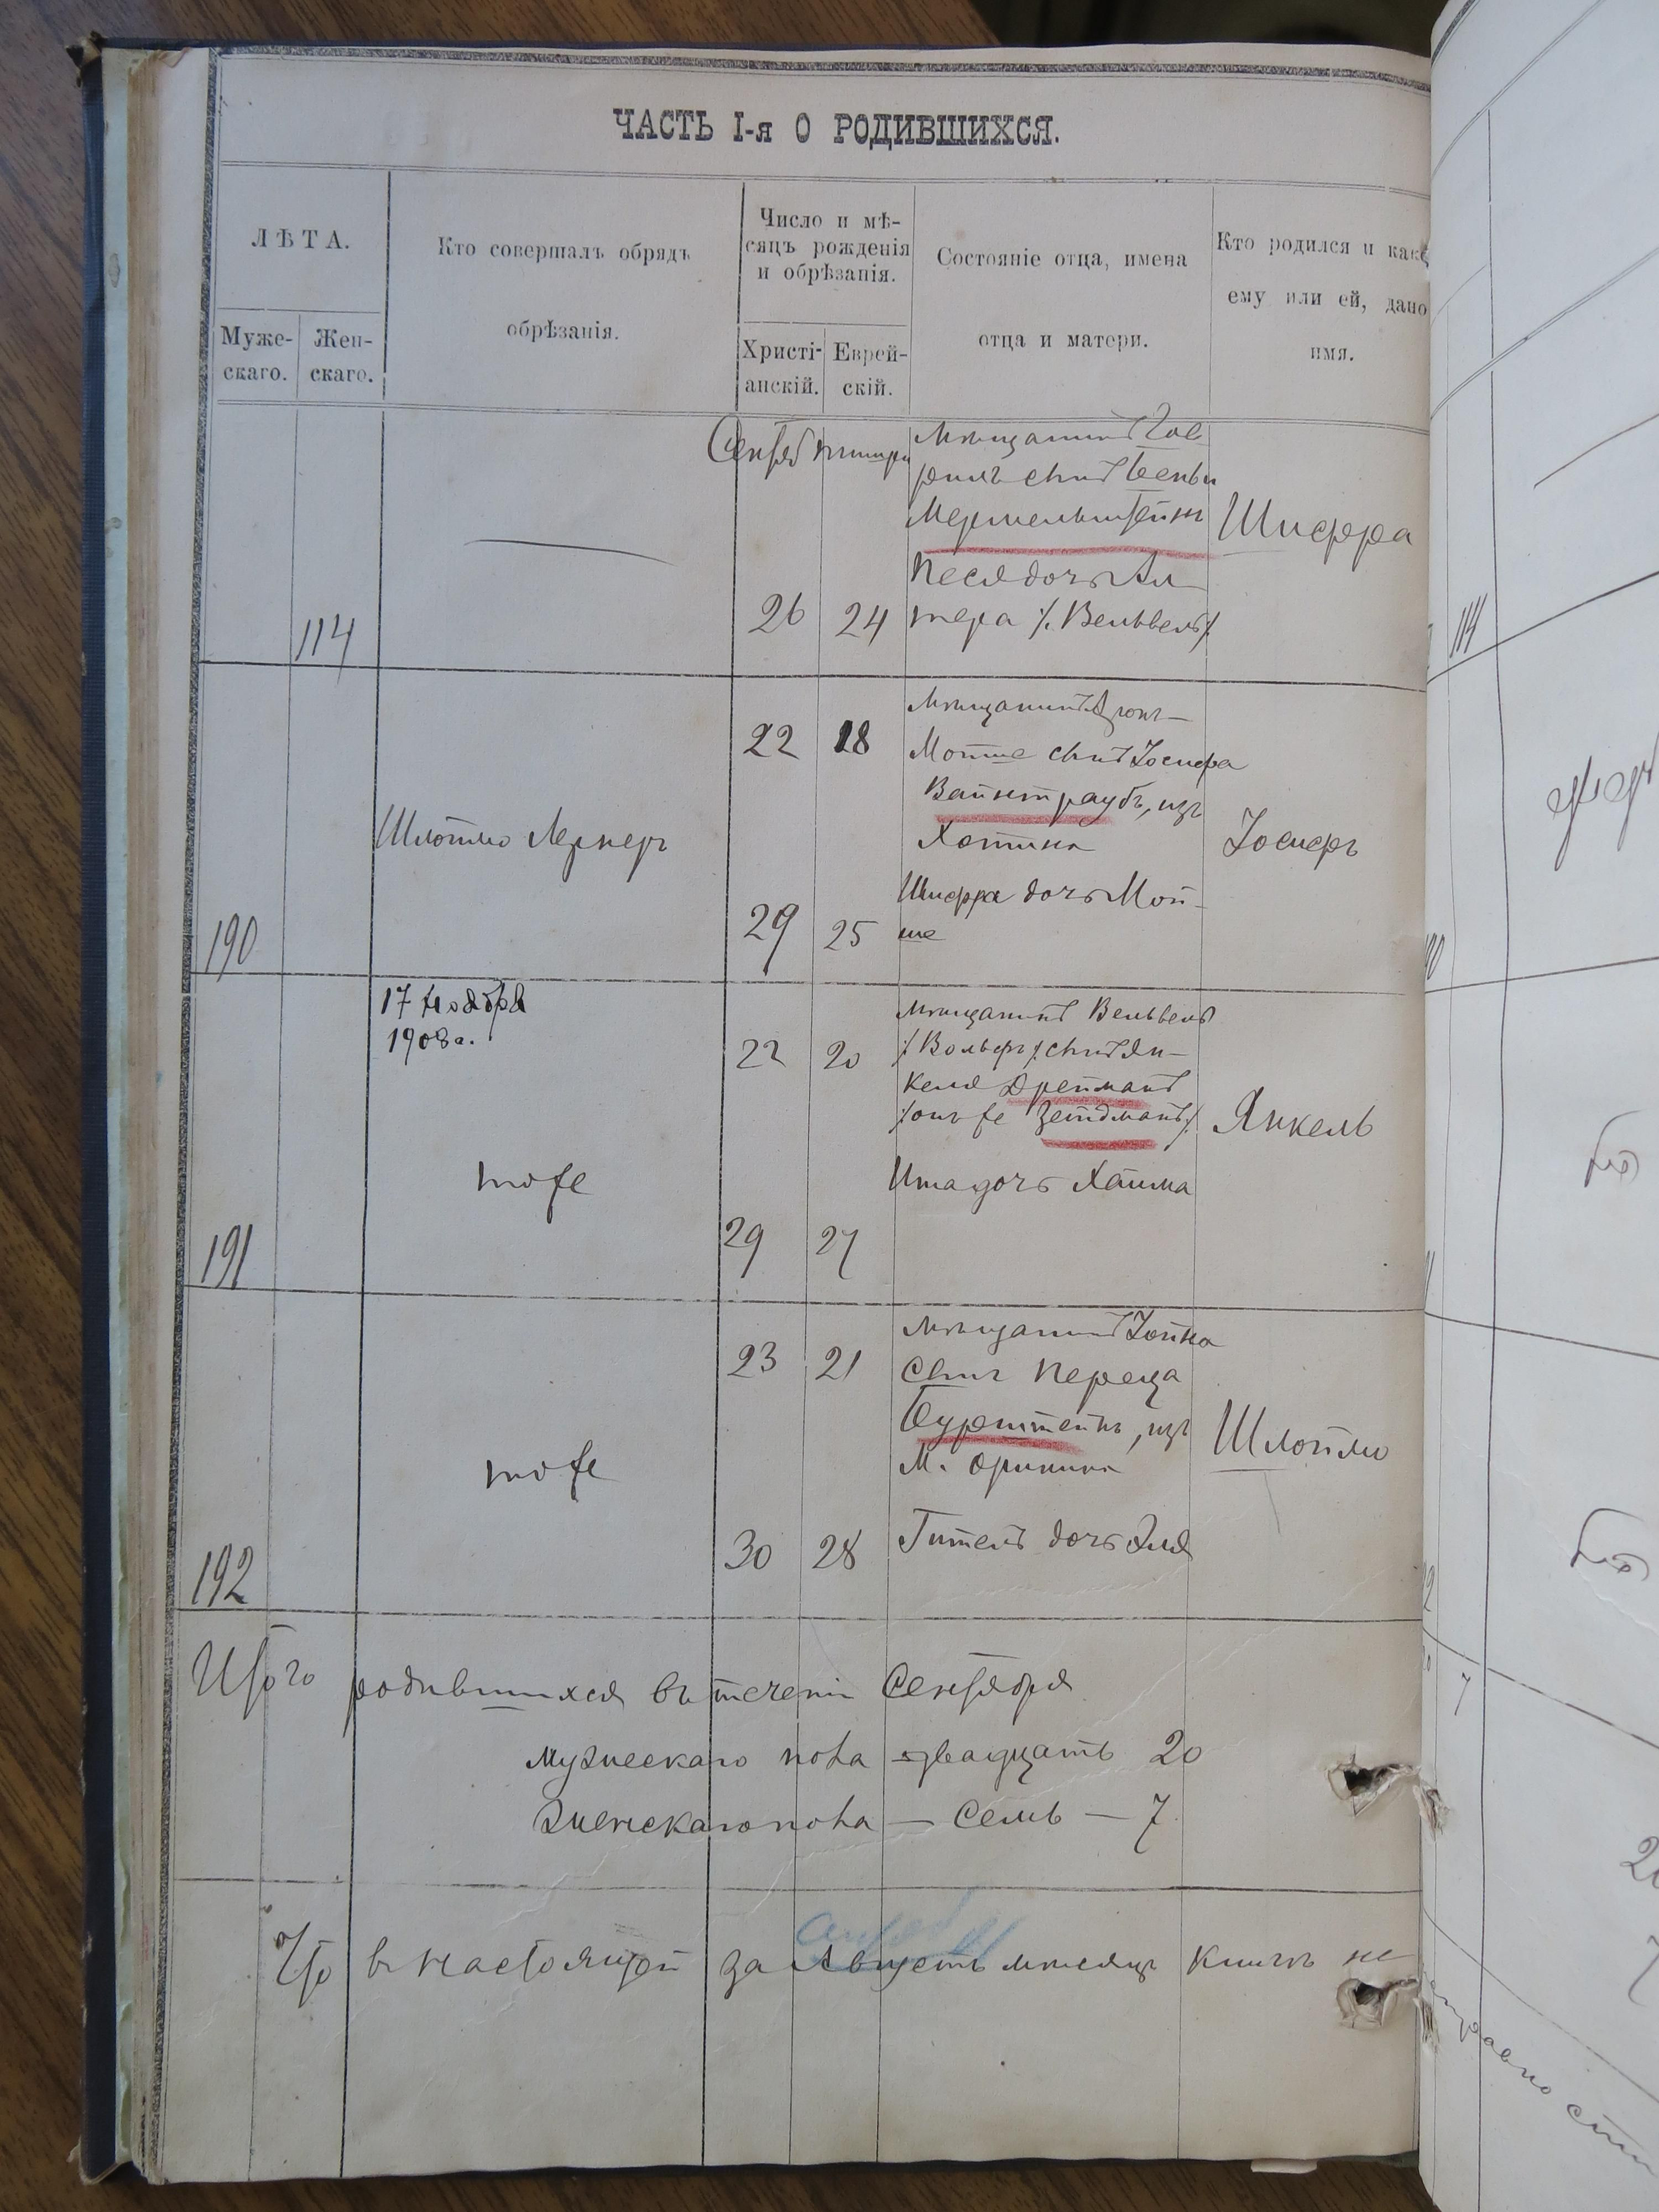 ЧАСТЬ I-я О РОДИВШИХСЯ.
ЛѢТА.
Муже-
скаго.
Жен-
скаго.
Кто совершалъ обрядъ
обрѣзанія.
Число и мѣ-
сяцъ рожденія
и обрѣзанія.
Христі-
анскій.
Еврей-
скій.
Состояніе отца, имена
отца и матери.
Кто родился и како
ему или ей, дано
имя.
114
Сентяб
тишри
26
24
мѣщанинъ Гав
рилъ сынъ Бенъи
Мермельштейнъ
Песя дочь Ал
тера /. Вельвель /.
Шифра
190
Шлоймо Лернеръ
22
18
29
25
мѣщанинъ Аронъ-
Мойше сынъ Іосифа
Вайнтраубъ, изъ
Хотина
Шифра дочь Мой-
ше
Іосифъ
191
17 Ноября
1908 г.
тоже
22
20
29
27
мѣщанинъ Вельвель
/. Вольфъ /. сынъ Ян-
келя Дрейманъ
/. онъ же Зейдманъ /.
Ита дочь Хаима
Янкель
192
тоже
23
21
30
28
мѣщанинъ Іойна
сынъ Переца
Бурштейнъ, изъ
М. Оринина
Гитель дочь Эля
Шлоймо
Итого родившихся въ теченіи Сентября
мужескаго пола - двадцать 20
женскаго пола — семь — 7
Что в настоящей за Августъ мѣсяцъ книгѣ не
114
7